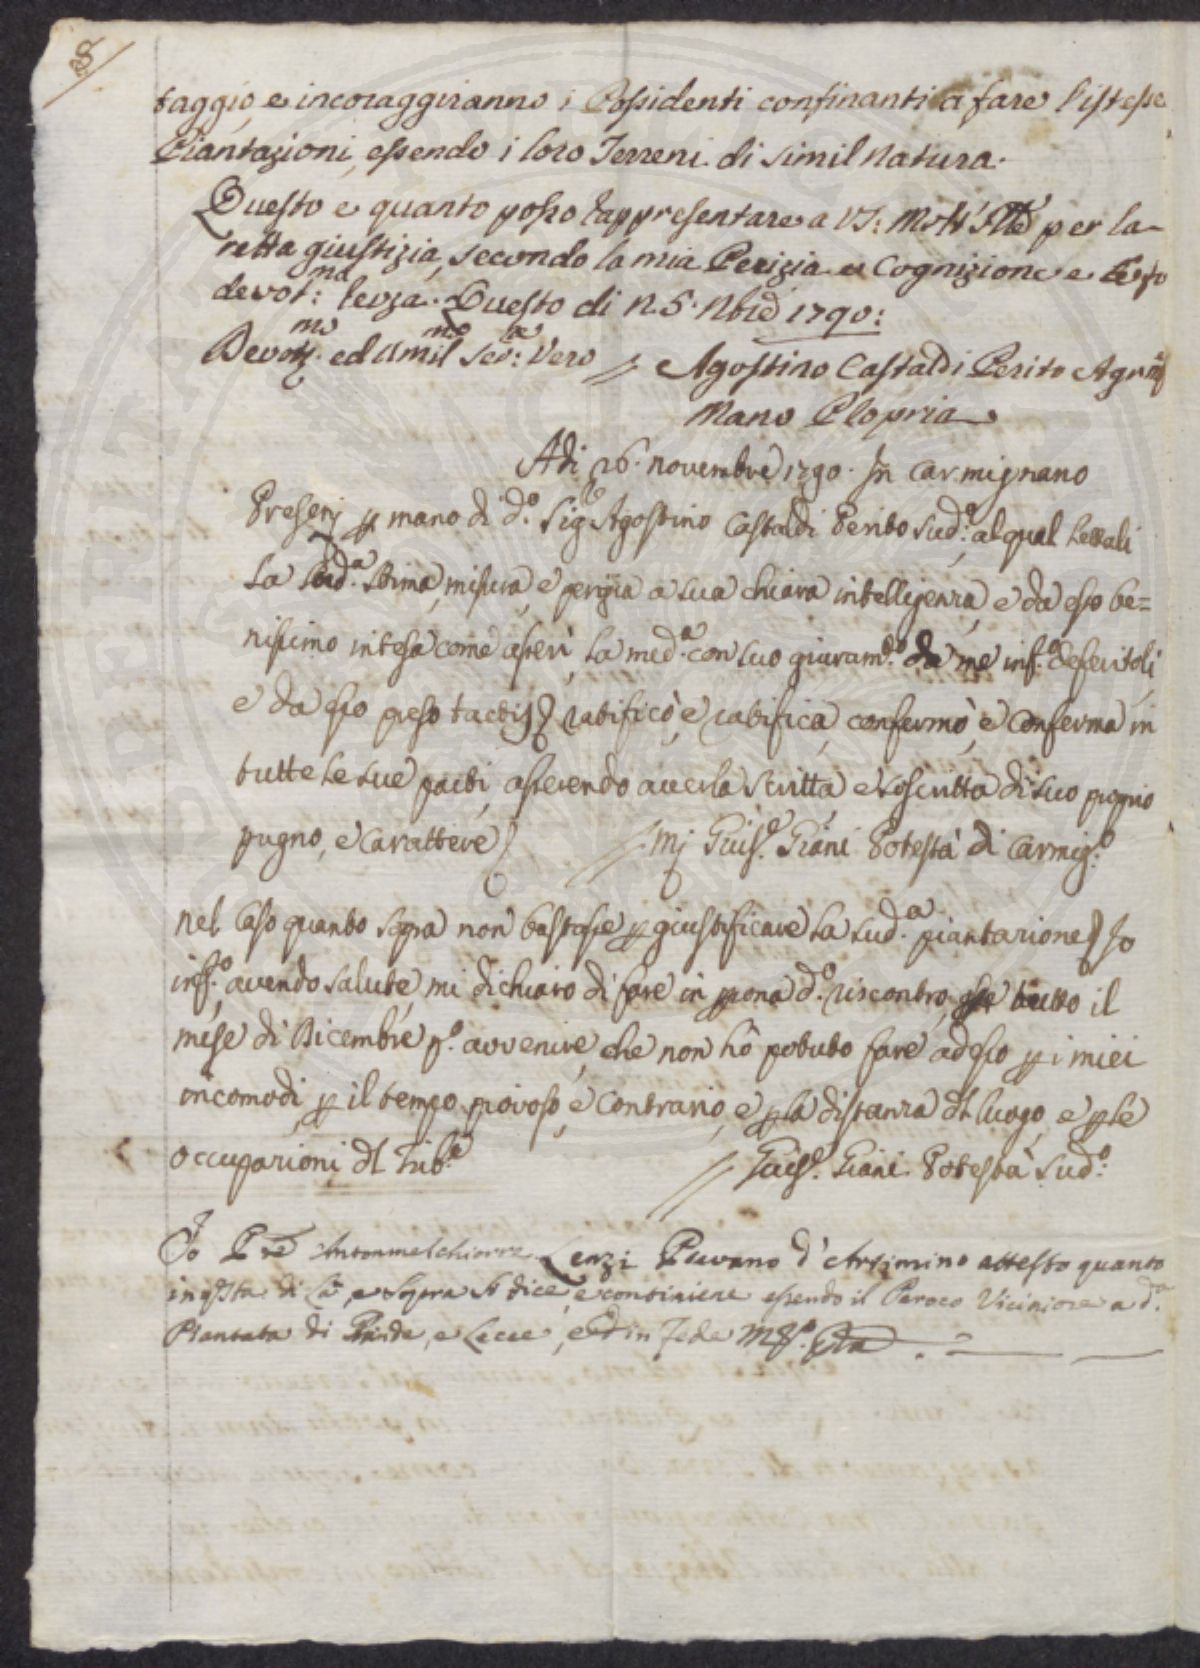 8
taggio, e incoraggiranno i Possidenti confinanti a fare l'istesse
Piantazioni, essendo i loro Terreni di simil natura.
Questo e quanto posso rappresentare a VS: Molt' Ill.e per la
retta giustizia, secondo la mia Perizia e Cognizione e
devot:ma Questo di n. 5. Nbre 1790:
Devot.mo ed Umil.mo Ser:e Vero // Agostino Castaldi Perito Agr.
Mano Propria
Adi 26. novembre 1790. In Carmignano
Present. p mano di d.o Sig.e Agostino Castaldi Perito sud.o al qual lettali
la sud.a stima, misura, e perizia a sua chiara intelligenza, e da esso be=
nissimo intesa come asserì, la med.a con suo giuram.o da me inf.o deferitoli,
e da esso preso tactis ratificò, e ratifica, confermò, e conferma in
tutte le sue parti, asserendo averla scritta e soscritta di suo proprio
pugno, e carattere // Mj Guis.e Giani Potestà di Carmig.o
nel caso quanto sopra non bastasse p giustificare la sud.a piantazione Io
inf.o, avendo salute, mi dichiaro di fare in pprona d.o riscontro, tutto il
mese di Dicembre p.o avvenire, che non hò potuto fare adesso p i miei
incomodi, p il tempo piovoso, e contrario, e p la distanza dl luogo, e p le
occupazioni dl Trib.e // Guis.e Giani Potestà sud.o
Io Pre Antonmelchiorre Lenzi Pievano d'Artimino attesto quanto
in qsta di là, e sopra si dice, e contiene essendo il Paroco Viciniore a d.a
Piantata di e Lecce, ed in fede M.o ppia